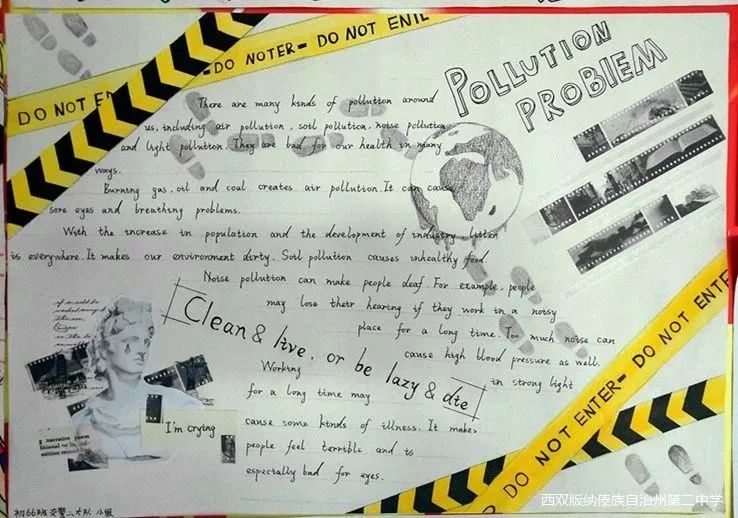 DO NOT EN
DO NOTER- DO NOT ENTE
POLLUTION
PROBLEM
There are many kinds of pollution around
us, including air pollution, soil pollution, noise pollution
and light pollution. They are bad for our health in many
ways.
Burning gas, oil and coal creates air pollution. It can cause
sore eyes and breathing problems.
With the increase in population and the development of industry, litter
is everywhere. It makes our environment dirty. Soil pollution causes unhealthy food.
Noise pollution can make people deaf. For example, people
may lose their hearing if they work in a noisy
place for a long time. Too much noise can
cause high blood pressure as well.
Clean & live, or be lazy & die
Working in strong light
for a long time may
cause some kinds of illness. It makes
people feel terrible and is
especially bad for eyes.
I'm crying
DO NOT ENTER- DO NOT ENTE
初66班 交警二大队 小组
西双版纳傣族自治州第二中学